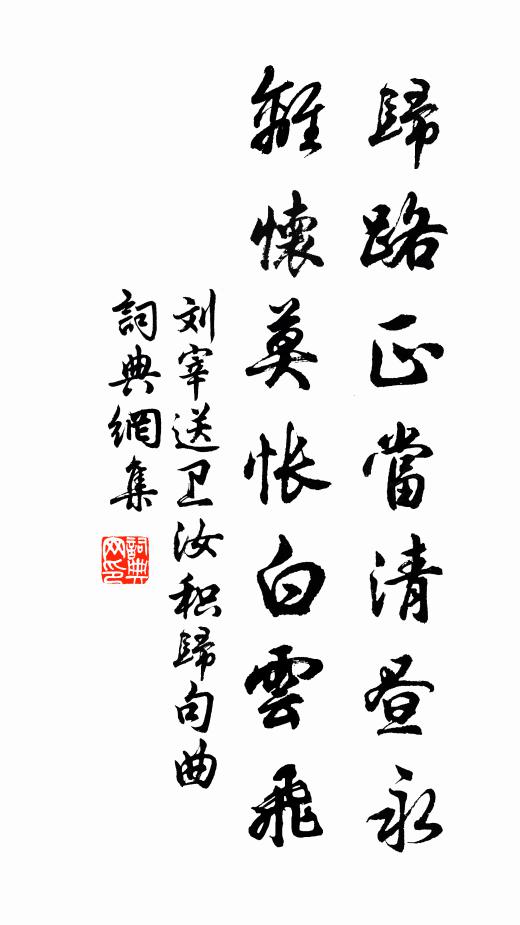 歸路正當清昼永
離懷莫怅白雲飛
刘宰送卫汝积歸句曲
詞典網集
詞典网印